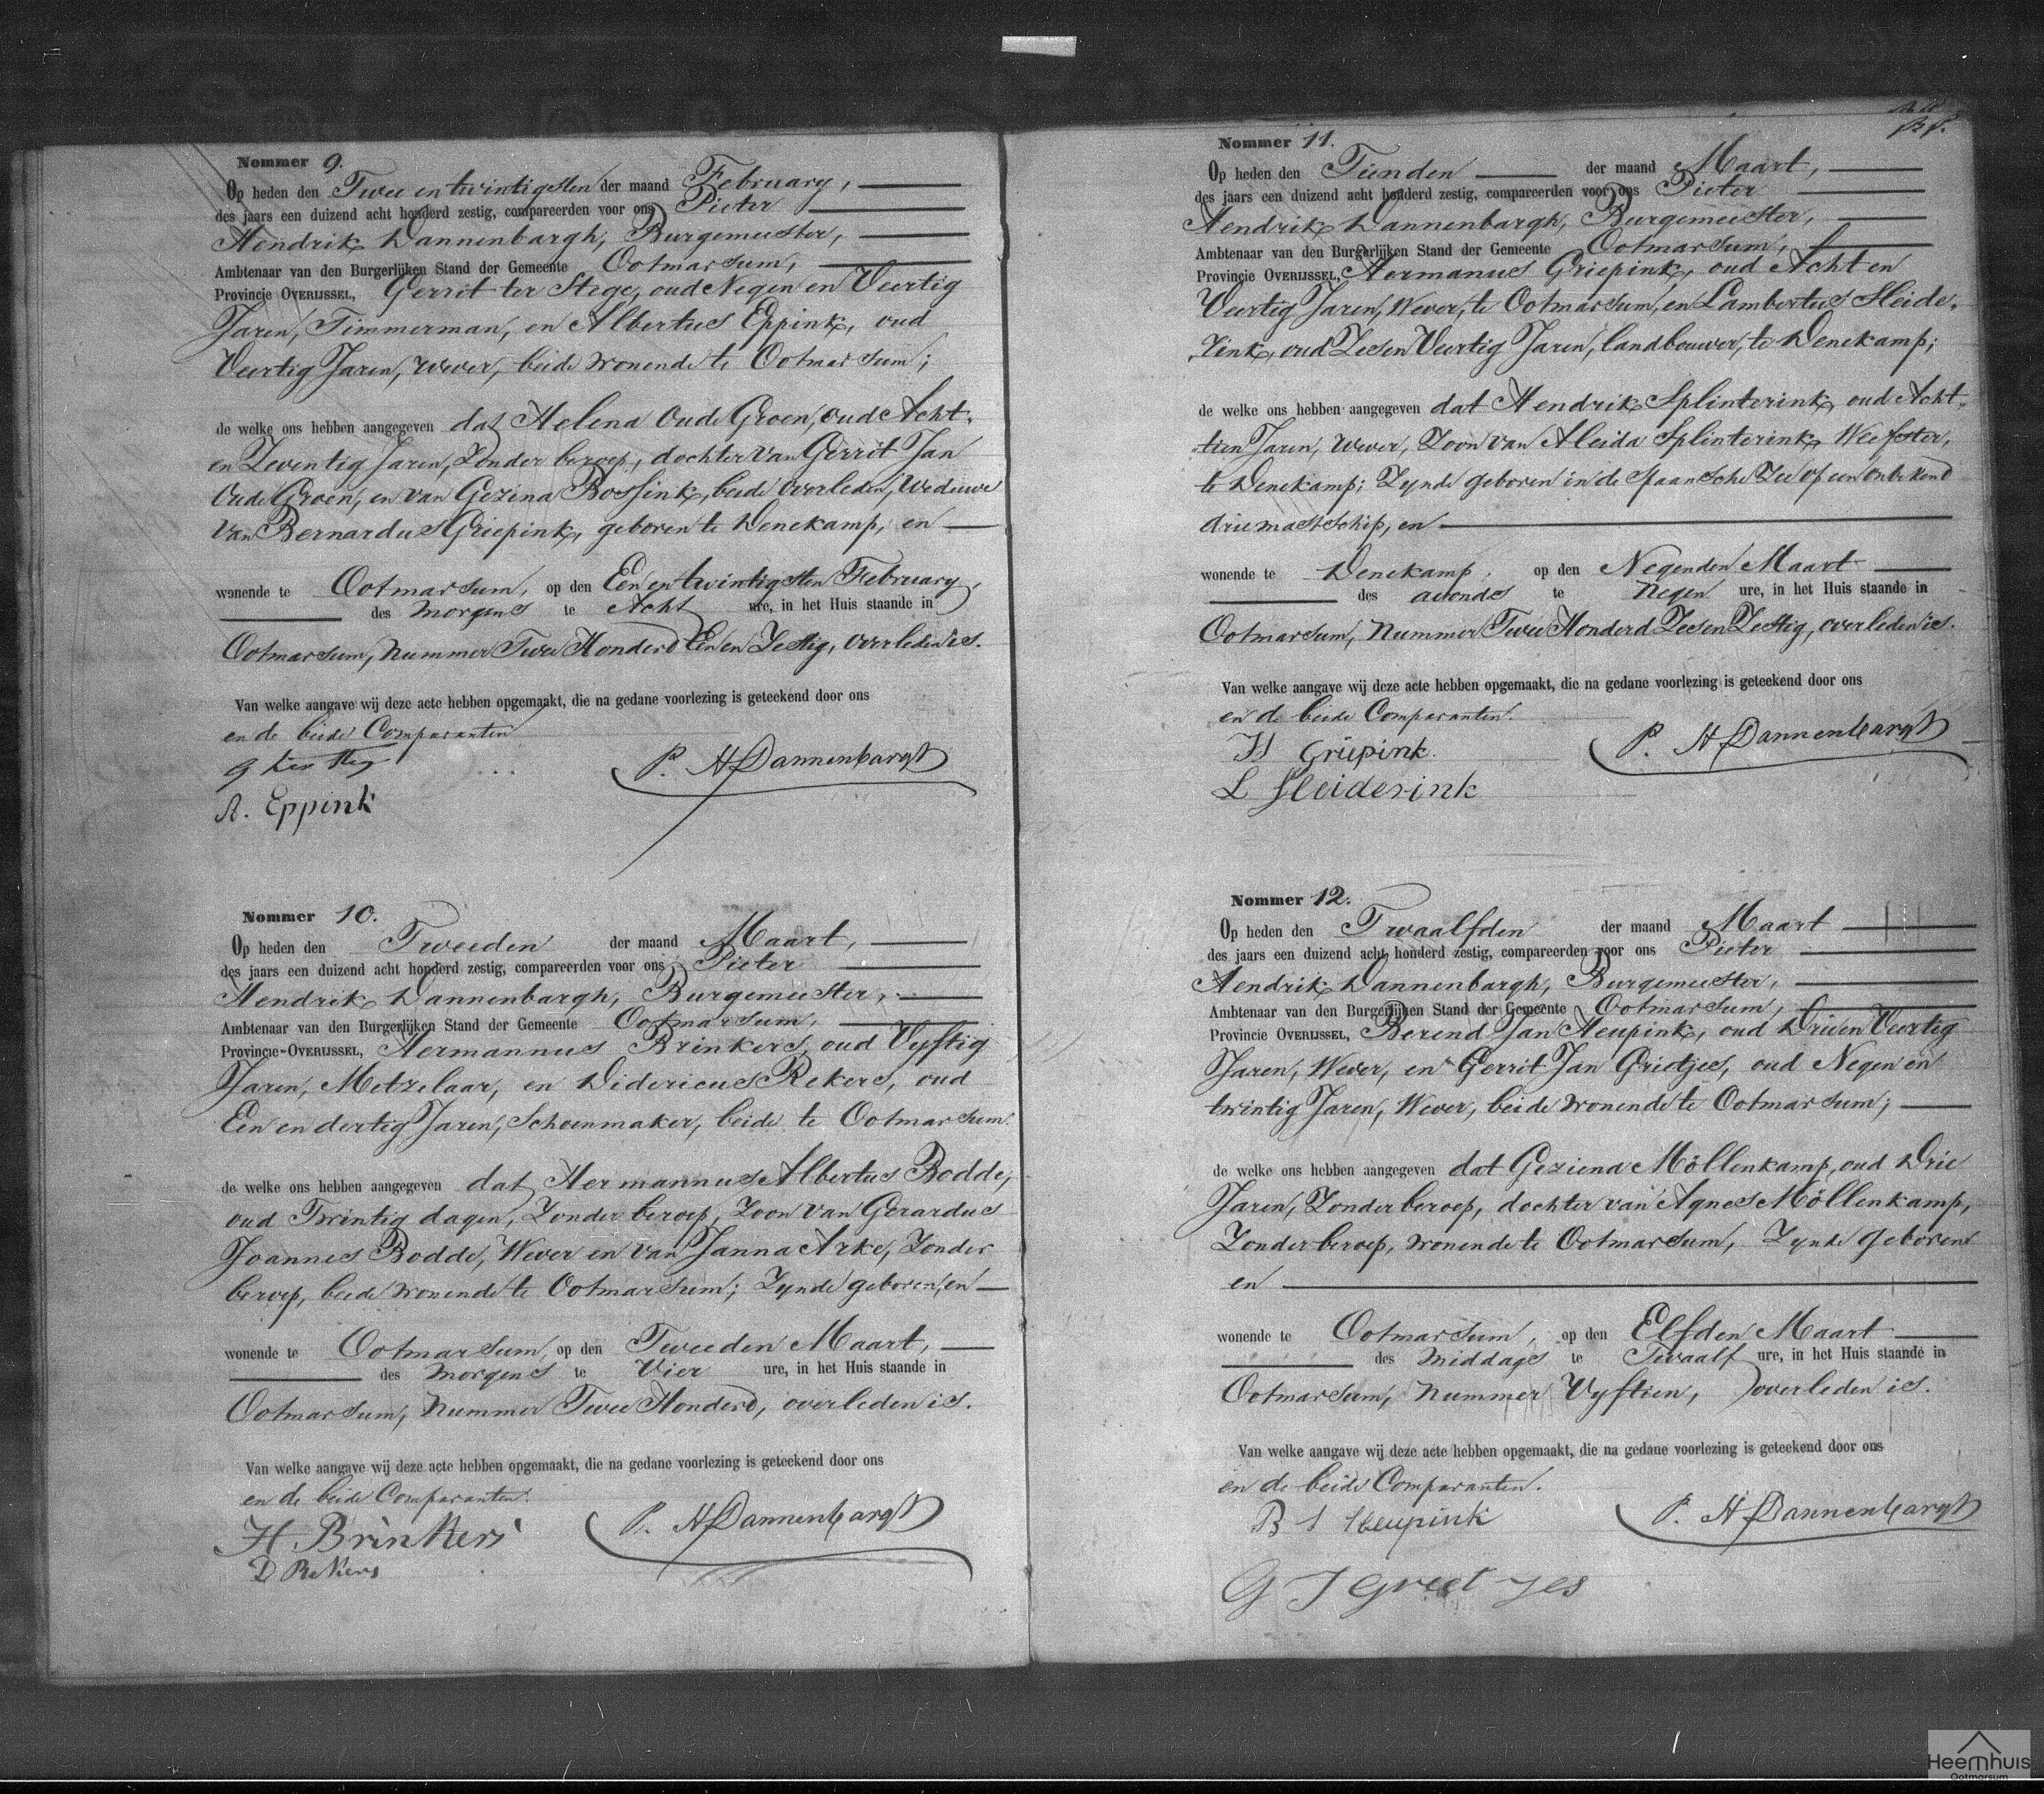 Nommer 9.
Op heden den Twee en twintigsten der maand February,
des jaars een duizend acht honderd zestig, compareerden voor ons Pieter
Hendrik Dannenbargh, Burgemeester,
Ambtenaar van den Burgerlijken Stand der Gemeente Ootmarsum,
Provincie OVERIJSSEL, Gerrit ter Stege, oud Negen en Veertig
Jaren, Timmerman, en Albertus Eppink, oud
Veertig Jaren, wever, beide wonende te Ootmarsum;
de welke ons hebben aangegeven dat Helena Oude Groen, oud Acht-
en Zeventig Jaren, Zonder beroep, dochter van Gerrit Jan
Oude Groen, en van Gezina Bossink, beide overleden, Weduwe
van Bernardus Griepink, geboren te Denekamp, en
wonende te Ootmarsum, op den Een en twintigsten February,
des morgens te Acht ure, in het Huis staande in
Ootmarsum, nummer Twee Honderd Een en Zestig, overleden is.
Van welke aangave wij deze acte hebben opgemaakt, die na gedane voorlezing is geteekend door ons
en de beide Comparanten
G ter Steg
P. H Dannenbargh
A. Eppink
Nommer 10.
Op heden den Tweeden der maand Maart,
des jaars een duizend acht honderd zestig, compareerden voor ons Pieter
Hendrik Dannenbargh, Burgemeester,
Ambtenaar van den Burgerlijken Stand der Gemeente Ootmarsum,
Provincie-OVERIJSSEL, Hermannus Brinkers, oud Vyftig
Jaren, Metzelaar, en Didericus Rekers, oud
Een en dertig Jaren, Schoenmaker, beide te Ootmarsum
de welke ons hebben aangegeven dat Hermannus Albertus Bodde,
oud Twintig dagen, Zonder beroep, Zoon van Gerardus
Joannes Bodde, Wever en van Janna Arke, Zonder
beroep, beide wonende te Ootmarsum; Zynde geboren, en
wonende te Ootmarsum, op den Tweeden Maart,
des morgens te Vier ure, in het Huis staande in
Ootmarsum, nummer Twee Honderd, overleden is.
Van welke aangave wij deze acte hebben opgemaakt, die na gedane voorlezing is geteekend door ons
en de beide Comparanten.
H Brinkers
P. H Dannenbargh
D Rekers
Nommer 11.
Op heden den Tienden der maand Maart,
des jaars een duizend acht honderd zestig, compareerden voor ons Pieter
Hendrik Dannenbargh, Burgemeester,
Ambtenaar van den Burgerlijken Stand der Gemeente Ootmarsum,
Provincie OVERIJSSEL, Hermanus Griepink, oud Acht en
Veertig Jaren, Wever, te Ootmarsum, en Lambertus Sleide-
rink, oud Zes en Veertig Jaren, landbouwer, te Denekamp;
de welke ons hebben aangegeven dat Hendrik Splinterink, oud Acht-
tien Jaren, wever, Zoon van Aleida Splinterink, Weefster,
te Denekamp; Zynde geboren in de Spaansche Zee op een onbekend
driemastschip, en
wonende te Denekamp, op den Negenden Maart
des avonds te Negen ure, in het Huis staande in
Ootmarsum, nummer Twee Honderd Zes en Zestig, overleden is.
Van welke aangave wij deze acte hebben opgemaakt, die na gedane voorlezing is geteekend door ons
en de beide Comparanten.
H Griepink.
P. H Dannenbargh
L Sleiderink
Nommer 12.
Op heden den Twaalfden der maand Maart
des jaars een duizend acht honderd zestig, compareerden voor ons Pieter
Hendrik Dannenbargh, Burgemeester,
Ambtenaar van den Burgerlijken Stand der Gemeente Ootmarsum,
Provincie OVERIJSSEL, Berend Jan Heupink, oud Drieen Veertig
Jaren, Wever, en Gerrit Jan Grietjes, oud Negen en
twintig Jaren, Wever, beide wonende te Ootmarsum;
de welke ons hebben aangegeven dat Geziena Möllenkamp, oud Drie
Jaren, Zonder beroep, dochter van Agnes Möllenkamp,
Zonder beroep, wonende te Ootmarsum, Zynde geboren
en
wonende te Ootmarsum, op den Elfden Maart
des middags te Twaalf ure, in het Huis staande in
Ootmarsum, nummer Vyftien, overleden is.
Van welke aangave wij deze acte hebben opgemaakt, die na gedane voorlezing is geteekend door ons
en de beide Comparanten.
B J Heupink
P. H Dannenbargh
G J Greetjes
Heemhuis
Ootmarsum